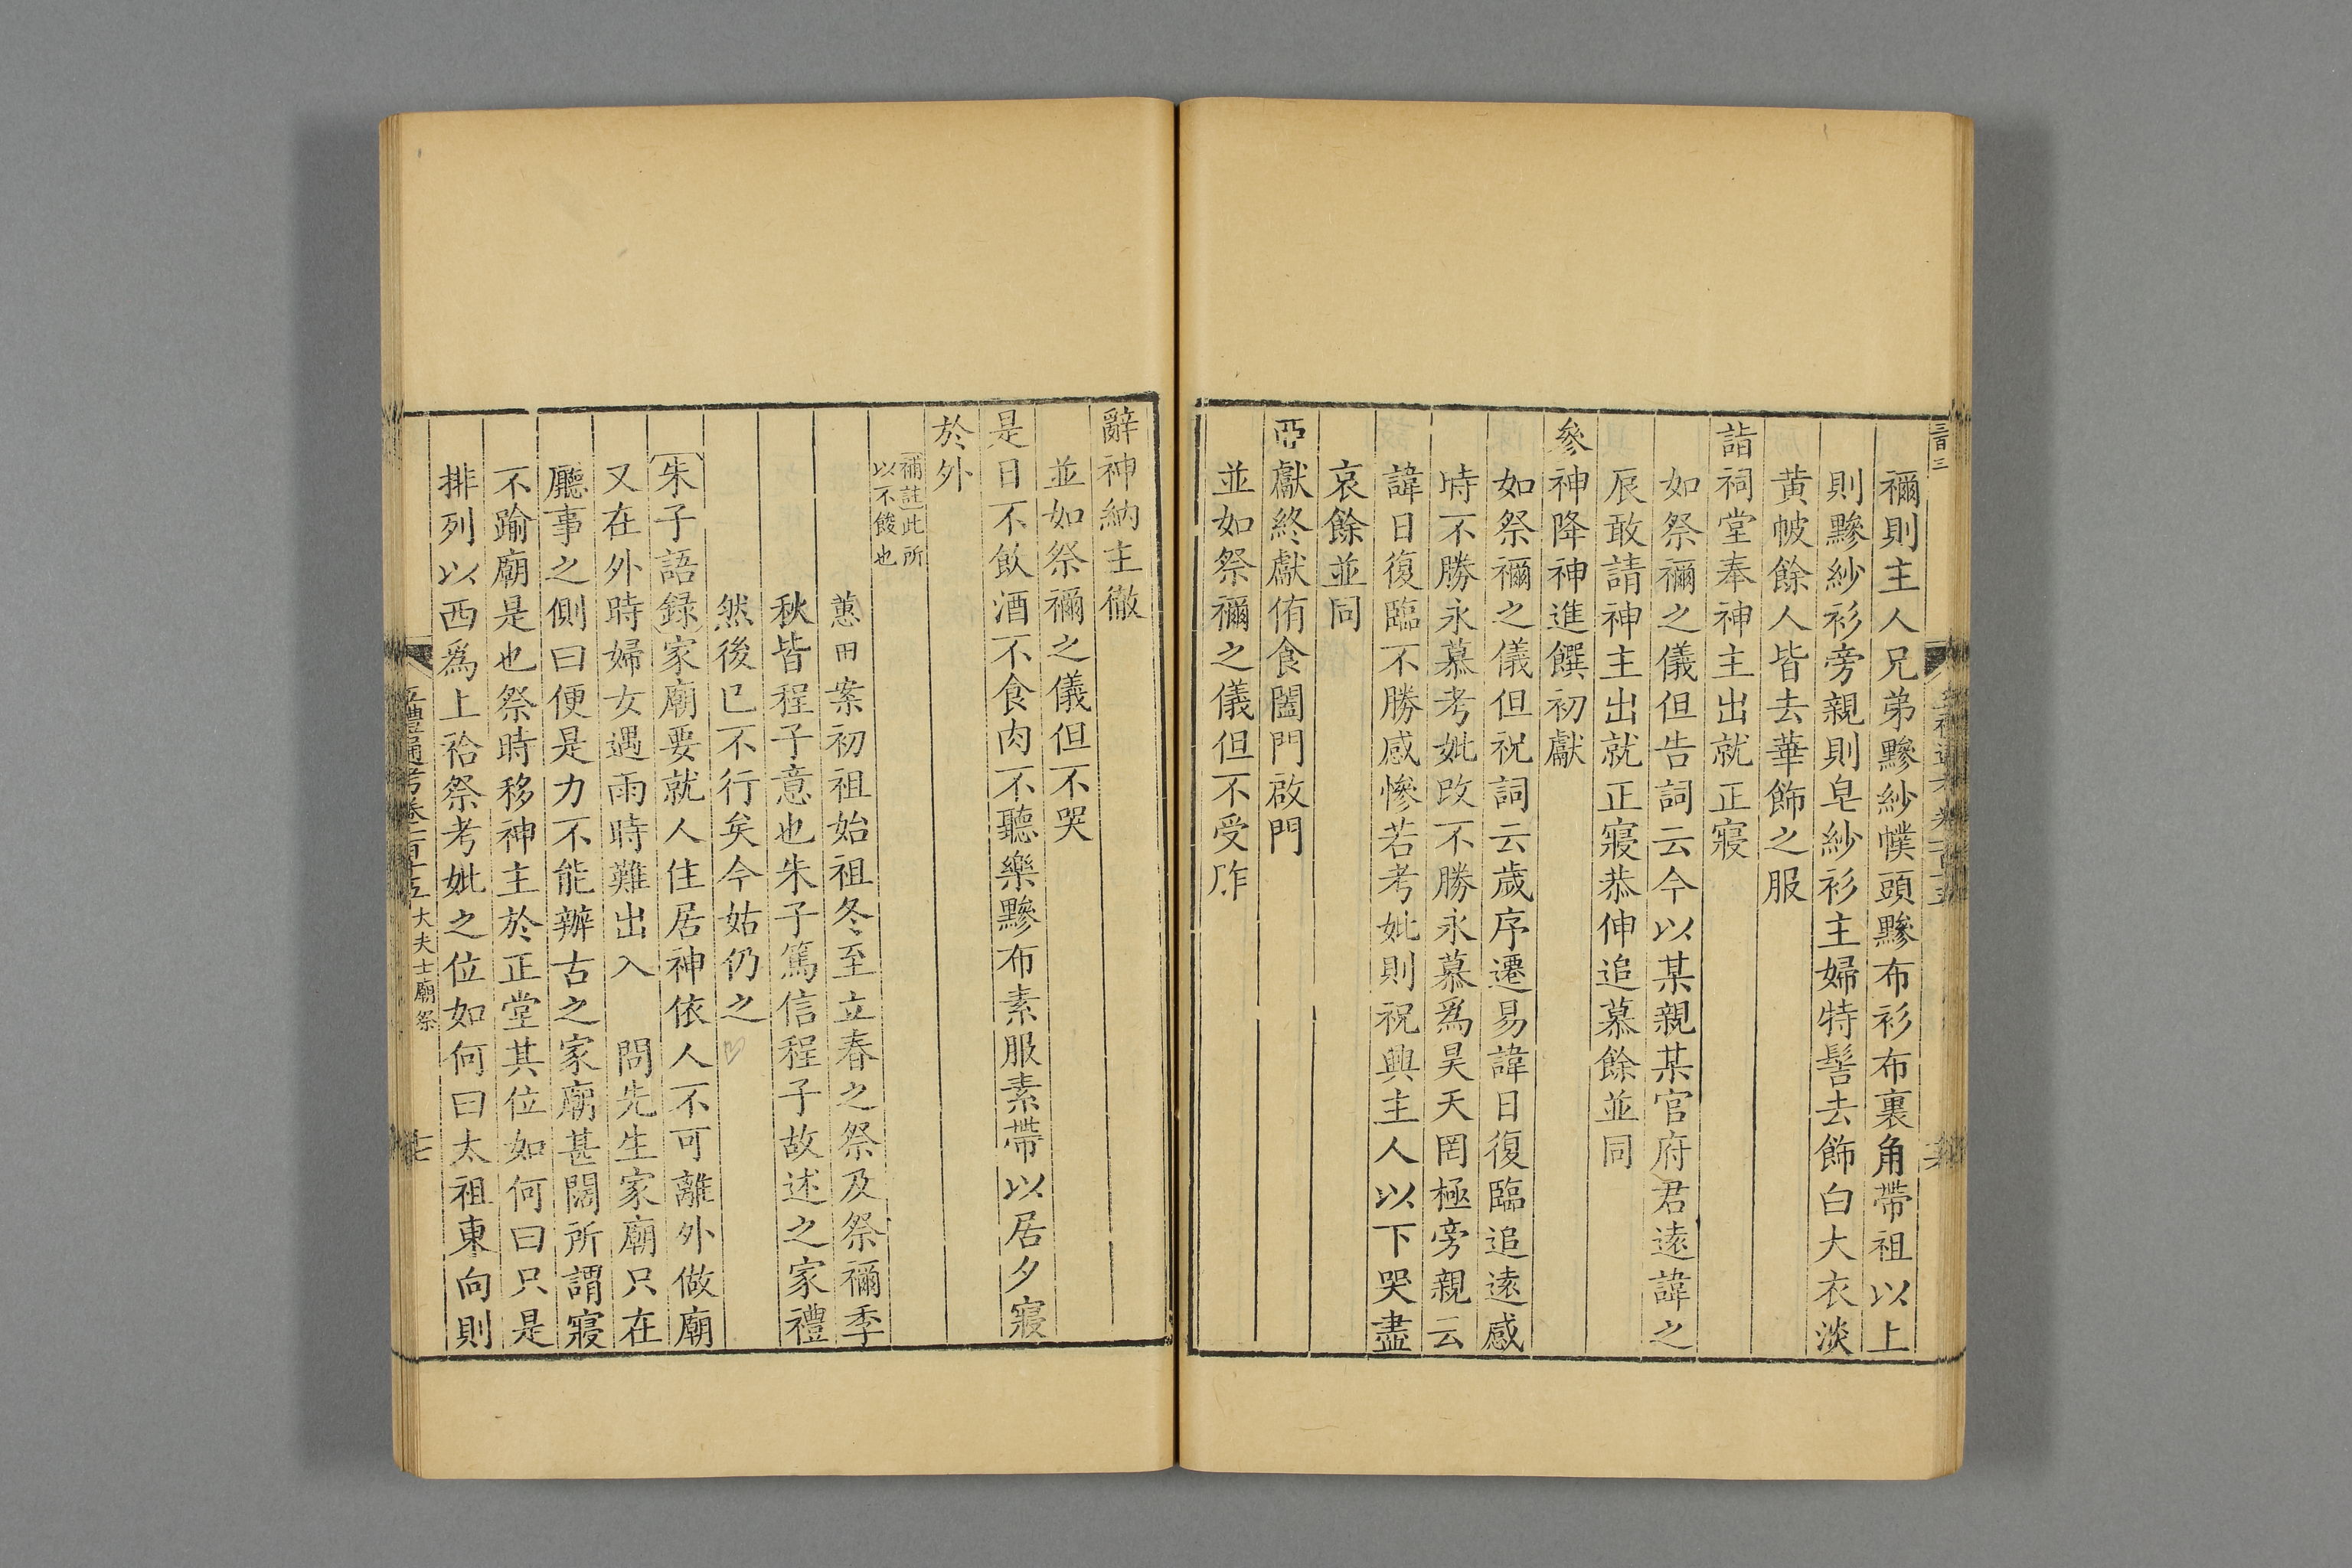 三百三
禰則主人兄弟黲紗幞頭黲布衫布裏角帶祖以上
則黲紗衫旁親則皂紗衫主婦特髻去飾白大衣淡
黄帔餘人皆去華飾之服
詣祠堂奉神主出就正寢
如祭禰之儀但告詞云今以某親某官府君遠諱之
辰敢請神主出就正寢恭伸追慕餘並同
參神降神進饌初獻
如祭禰之儀但祝詞云歲序遷易諱日復臨追遠感
時不勝永慕考妣改不勝永慕爲昊天罔極旁親云
諱日復臨不勝感愴若考妣則祝興主人以下哭盡
哀餘並同
亞獻終獻侑食闔門啟門
並如祭禰之儀但不受胙
辭神納主徹
並如祭禰之儀但不哭
是日不飲酒不食肉不聽樂黲布素服素帶以居夕寢
於外
補註此所
以不餕也
蕙田案初祖始祖冬至立春之祭及祭禰季
秋皆程子意也朱子篤信程子故述之家禮
然後已不行矣今姑仍之
朱子語録家廟要就人住居神依人不可離外做廟
又在外時婦女遇雨時難出入　問先生家廟只在
廳事之側曰便是力不能辦古之家廟甚闊所謂寢
不踰廟是也祭時移神主於正堂其位如何曰只是
排列以西爲上祫祭考妣之位如何曰太祖東向則
五禮通考卷一百十五 大夫士廟祭